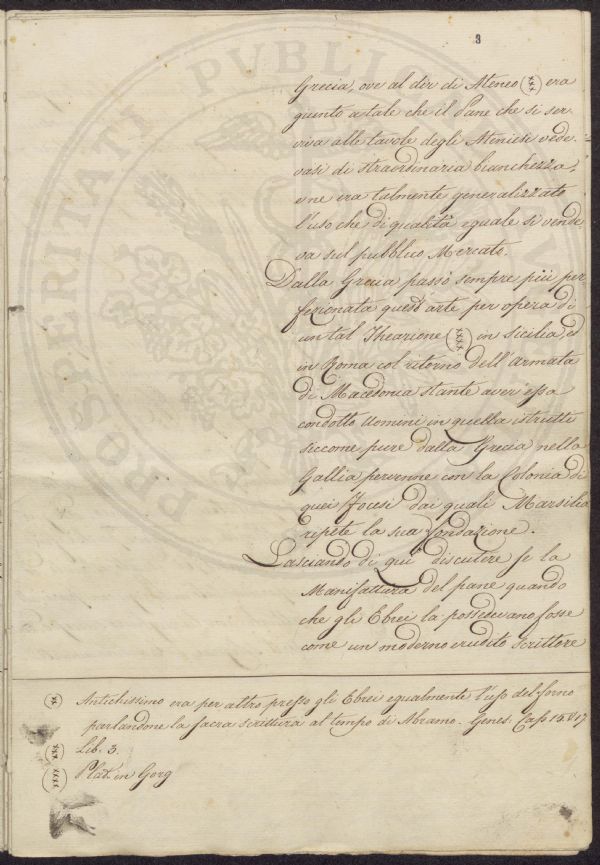 3
Grecia, ove al dir di Ateneo (xxx) era
giunto a tale che il Pane che si ser
viva alle tavole degli Ateniesi vede
vasi di straordinaria bianchezza,
e ne era talmente generalizzato
l'uso che di qualità eguale si vende
va sul pubblico Mercato.
Dalla Grecia passò sempre più per
fezionata quest'arte per opera di
un tal Thearione (xxxx) in Sicilia, ed
in Roma col ritorno dell'armata
di Macedonia stante aver'essa
condotto Uomini in quella istrutti
siccome pure dalla Grecia nella
Gallia pervenne con la Colonia di
quei Focesi dai quali Marsilia
ripete la sua fondazione.
Lasciando di qui discutere se la
Manifattura del pane quando
che gli Ebrei la possedevano fosse
come un moderno erudito scrittore
(xx) Antichissimo era per altro presso gli Ebrei egualmente l'uso del forno
parlandone la sacra scrittura al tempo di Abramo. Genes. Cap 15. V 17
(xxx) Lib. 3.
(xxxx) Plat. in Gorg
PROSPERITATI PVBLIC